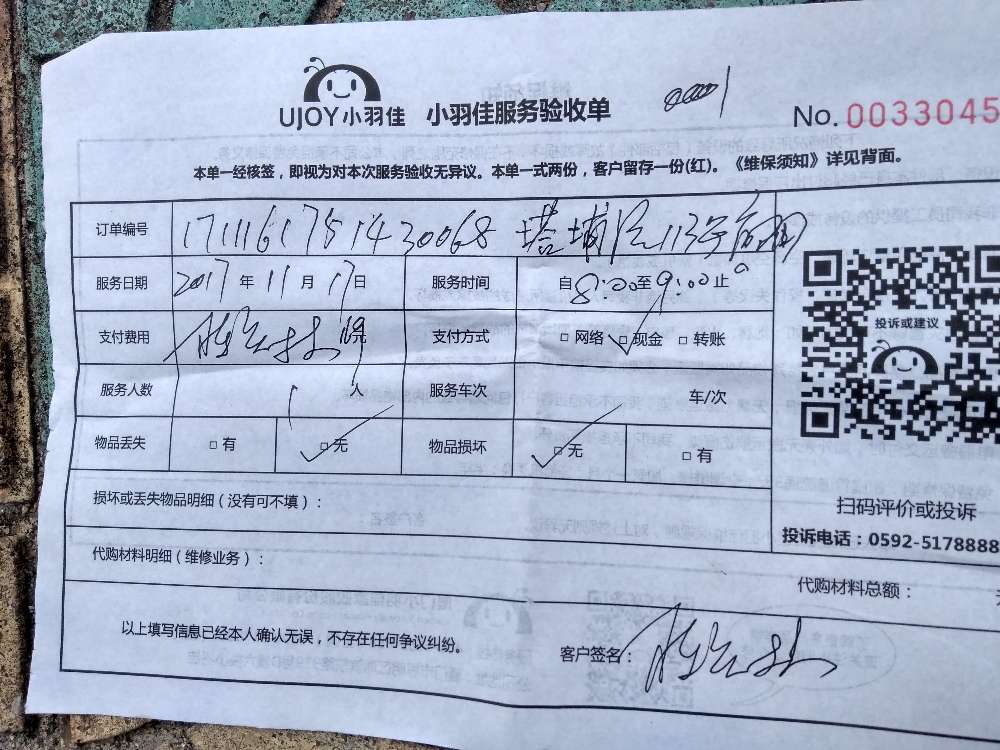 UJOY小羽佳 小羽佳服务验收单 0001 No. 0033045
本单一经核签，即视为对本次服务验收无异议。本单一式两份，客户留存一份(红)。《维保须知》详见背面。
订单编号 1711161751430068 塔埔
服务日期 2017 年 11 月 17 日 服务时间 自 8:00 至 9:00 止
支付费用 元 支付方式 □ 网络 ☑ 现金 □ 转账
服务人数 1 人 服务车次 车/次
物品丢失 □ 有 ☑ 无 物品损坏 ☑ 无 □ 有
损坏或丢失物品明细（没有可不填）：
代购材料明细（维修业务）：
代购材料总额：
以上填写信息已经本人确认无误，不存在任何争议纠纷。
客户签名：
投诉或建议
扫码评价或投诉
投诉电话：0592-5178888